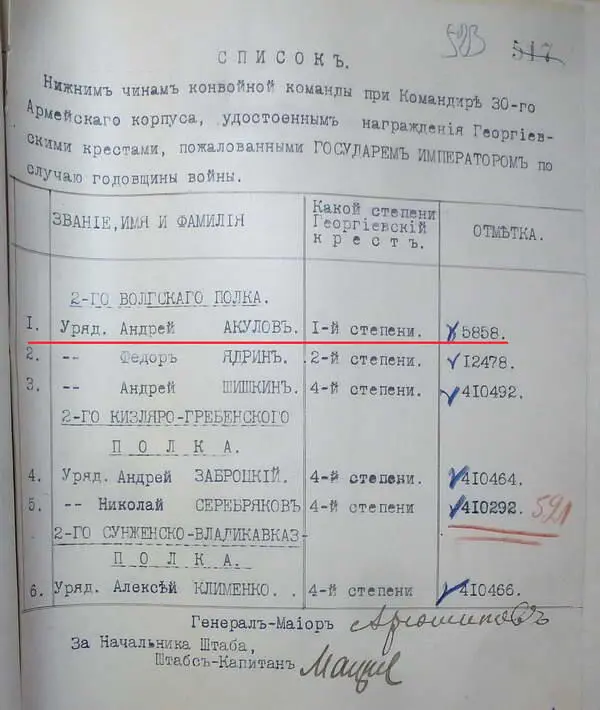 523 517
СПИСОКЪ.
Нижнимъ чинамъ конвойной команды при Командирѣ 30-го
Армейскаго корпуса, удостоеннымъ награжденія Георгіев-
скими крестами, пожалованными ГОСУДАРЕМЪ ИМПЕРАТОРОМЪ по
случаю годовщины войны.
ЗВАНІЕ, ИМЯ И ФАМИЛІЯ
Какой степени
Георгіевскій
крестъ.
ОТМѢТКА.
2-ГО ВОЛГСКАГО ПОЛКА.
I. Уряд. Андрей АКУЛОВЪ. I-й степени. 5858.
2. -- Федоръ ЯДРИНЪ. 2-й степени. I2478.
3. -- Андрей ШИШКИНЪ. 4-й степени. 4I0492.
2-ГО КИЗЛЯРО-ГРЕБЕНСКОГО
ПОЛКА.
4. Уряд. Андрей ЗАБРОЦКІЙ. 4-й степени. 4I0464.
5. -- Николай СЕРЕБРЯКОВЪ 4-й степени 4I0292. 521
2-ГО СУНЖЕНСКО-ВЛАДИКАВКАЗ-
ПОЛКА.
6. Уряд. Алексѣй КЛИМЕНКО. . 4-й степени 4I0466.
Генералъ-Маіоръ
За Начальника Штаба,
Штабсъ-Капитанъ